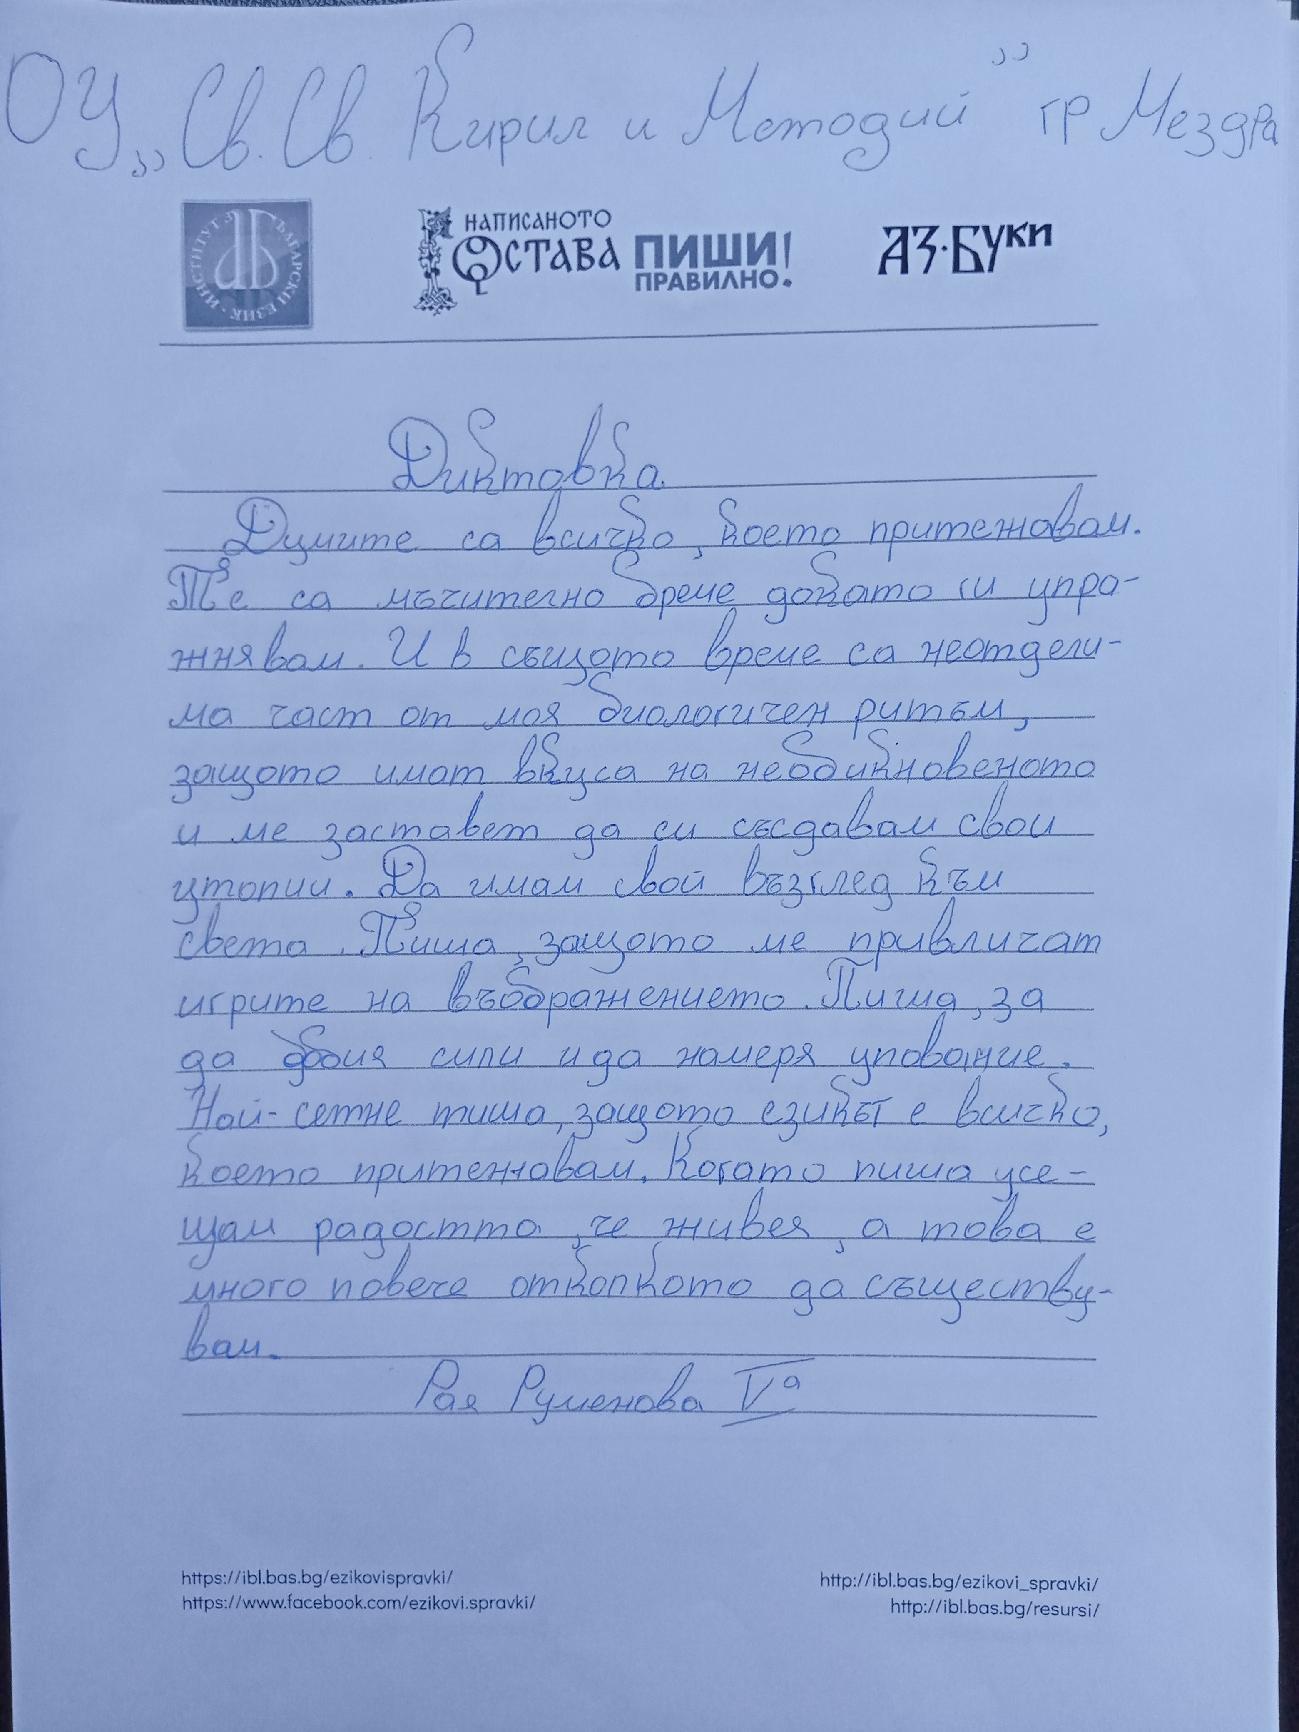 ОУ „Св. Св. Кирил и Методий” гр Мездра
ИНСТИТУТ ЗА БЪЛГАРСКИ ЕЗИК
НАПИСАНОТО
ОСТАВА ПИШИ!
ПРАВИЛНО.
АЗ·БУКИ
Диктовка
Думите са всичко, което притежавам.
Те са мъчително бреме докато ги упра-
жнявам. И в същото време са неотдели-
ма част от моя биологичен ритъм,
защото имат вкуса на необикновеното
и ме заставет да си съсдавам свои
утопии. Да имам свой възглед към
света. Пиша, защото ме привличат
игрите на въображението. Пиша, за
да добия сили и да намеря упование.
Най-сетне пиша, защото езикът е всичко,
което притежавам. Когато пиша усе-
щам радостта, че живея, а това е
много повече отколкото да съществу-
вам.
Рая Руменова Vа
https://ibl.bas.bg/ezikovispravki/ http://ibl.bas.bg/ezikovi_spravki/
https://www.facebook.com/ezikovi.spravki/ http://ibl.bas.bg/resursi/